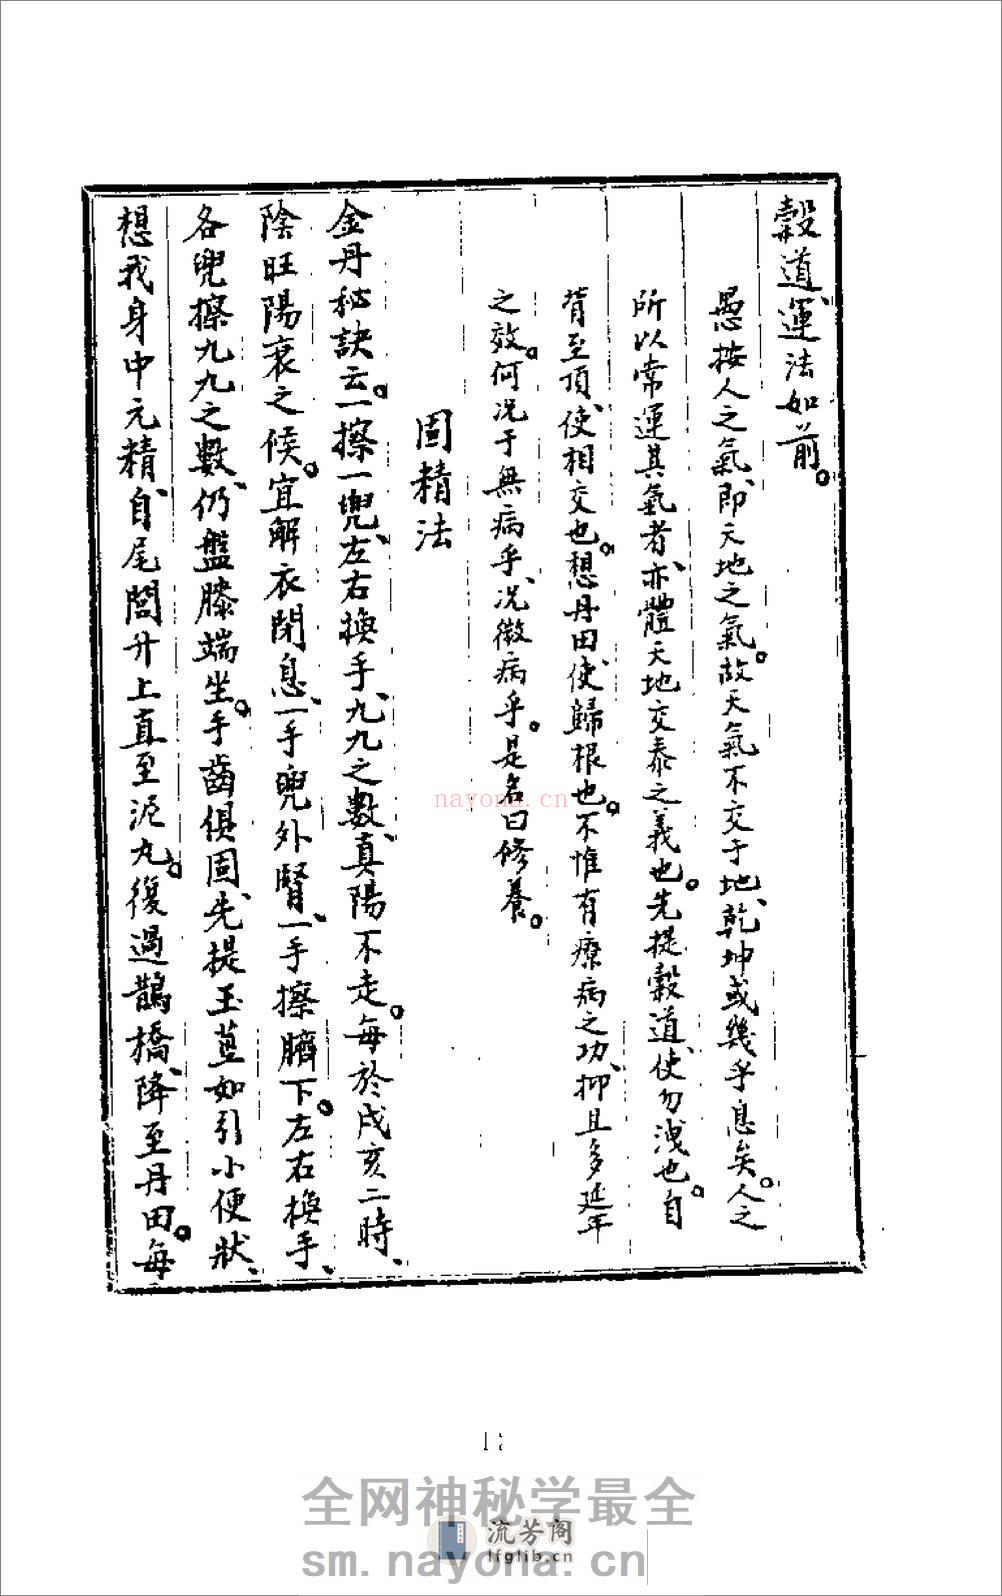 穀道、運法如前。
愚按人之氣、即天地之氣。故天氣不交于地、乾坤或幾乎息矣。人之
所以常運其氣者、亦體天地交泰之義也。先提穀道、使勿洩也。自
背至頂、使相交也。想丹田、使歸根也。不惟有療病之功、抑且多延年
之效。何況于無病乎、況微病乎。是名曰修養。
固精法
金丹秘訣云。一擦一兜、左右換手、九九之數、真陽不走。每於戌亥二時、
陰旺陽衰之候。宜解衣閉息、一手兜外腎、一手擦臍下。左右換手、
各兜擦九九之數、仍盤膝端坐。手齒俱固、先提玉莖如引小便狀、
想我身中元精、自尾閭升上直至泥丸。復過鵲橋、降至丹田。每
nayona.cn
全网神秘学最全
流芳阁
lfglib.cn
sm.nayona.cn